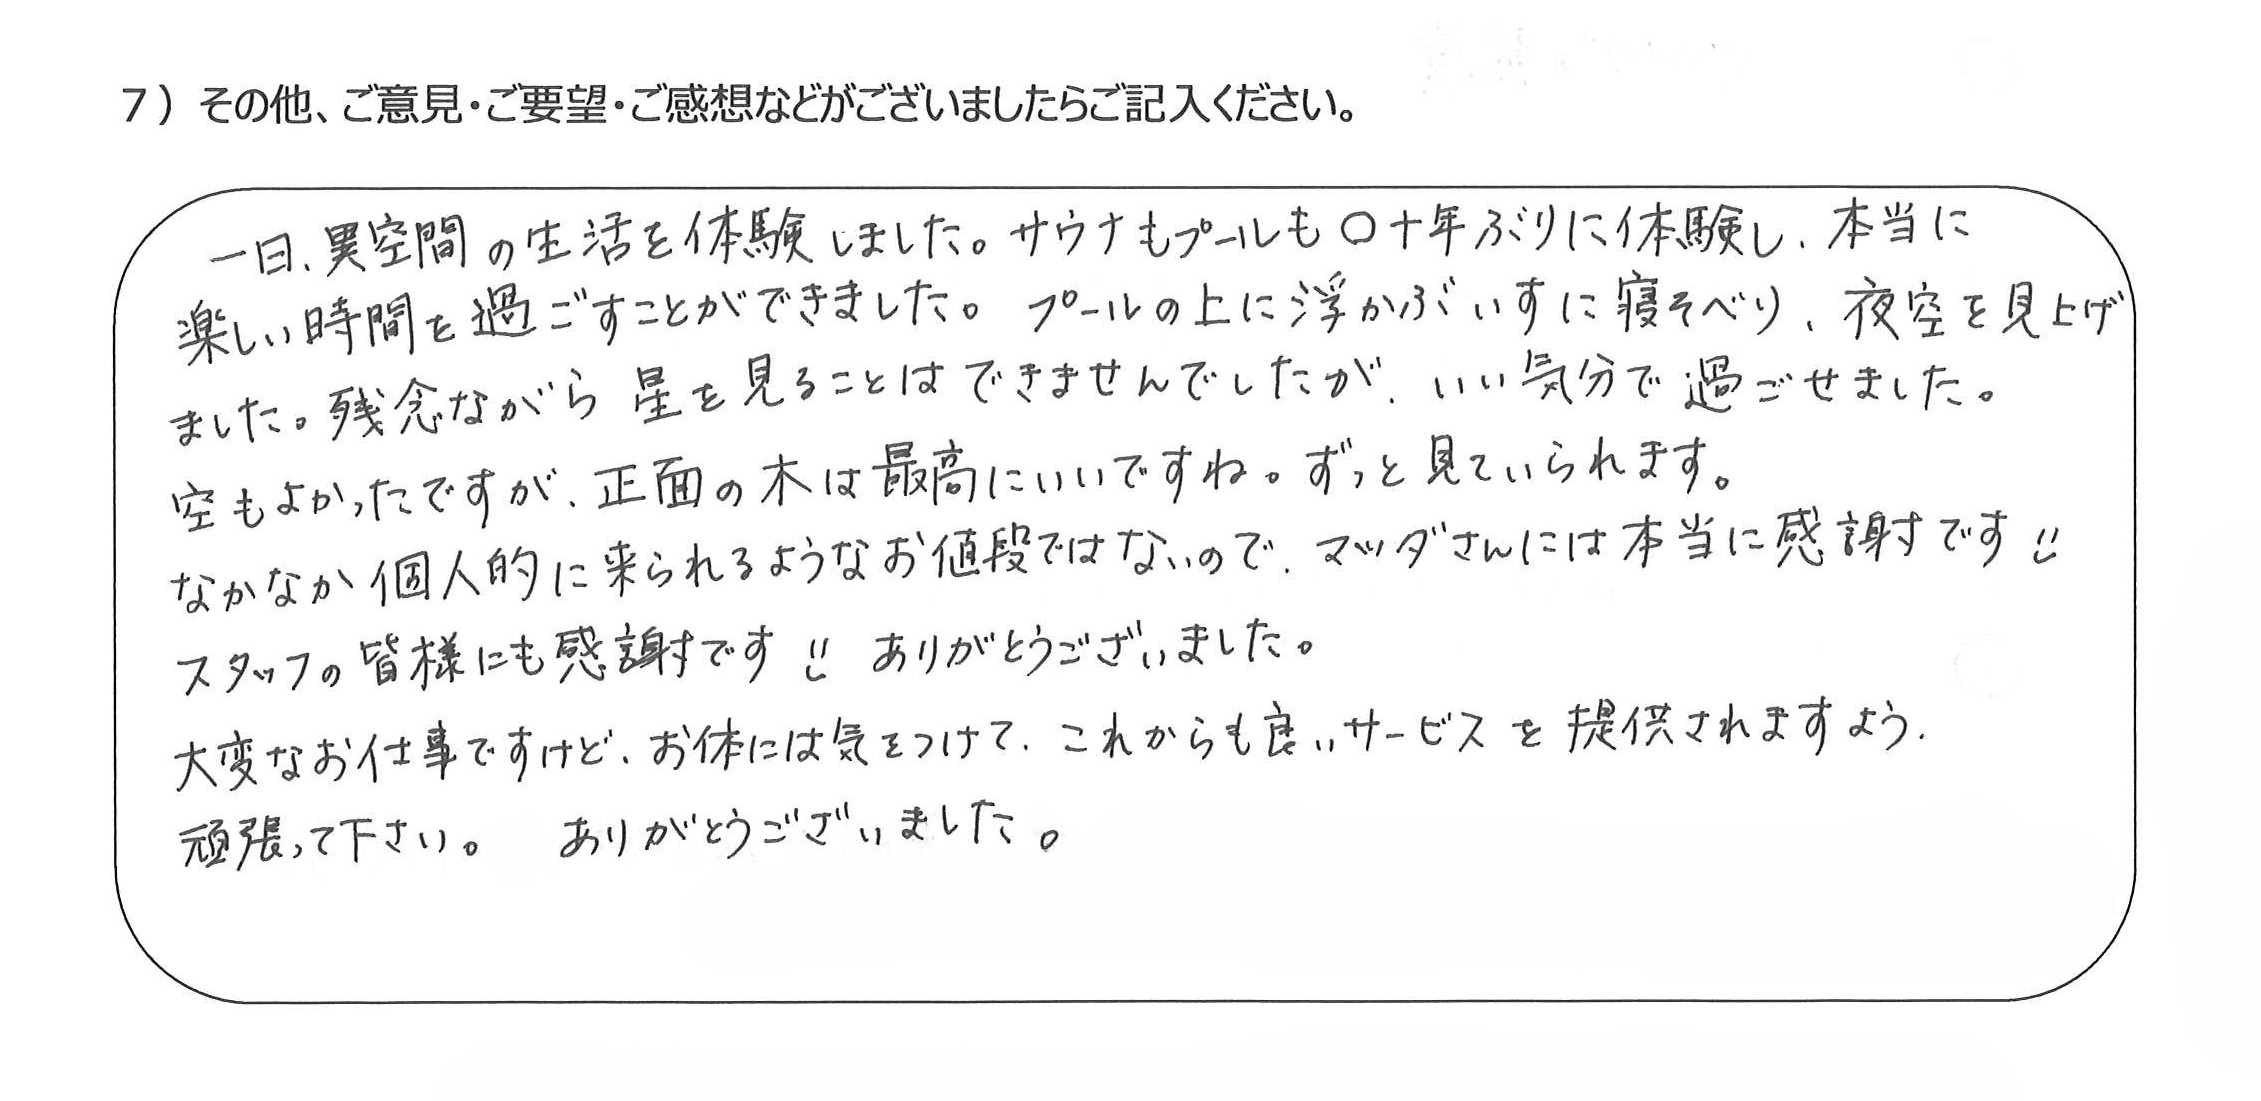 7）その他、ご意見・ご要望・ご感想などがございましたらご記入ください。
一日、異空間の生活を体験しました。サウナもプールも〇十年ぶりに体験し、本当に
楽しい時間を過ごすことができました。プールの上に浮かぶいすに寝そべり、夜空を見上げ
ました。残念ながら星を見ることはできませんでしたが、いい気分で過ごせました。
空もよかったですが、正面の木は最高にいいですね。ずっと見ていられます。
なかなか個人的に来られるようなお値段ではないので、マツダさんには本当に感謝です!!
スタッフの皆様にも感謝です!! ありがとうございました。
大変なお仕事ですけど、お体には気をつけて、これからも良いサービスを提供されますよう、
頑張って下さい。 ありがとうございました。